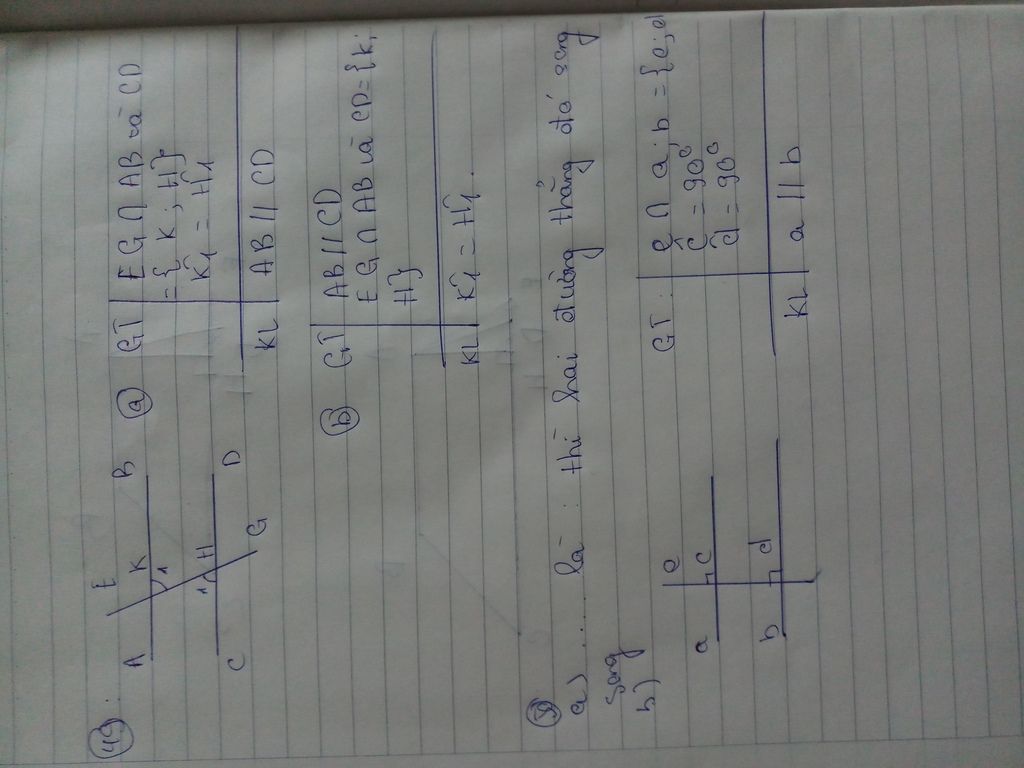 49
E
A K B
1
1 H
C D
G
a
GT EG ∩ AB và CD
= { K ; H }.
K̂1 = Ĥ1
KL AB // CD
b
GT AB // CD
EG ∩ AB và CD = { K ;
H }
KL K̂1 = Ĥ1.
50
a) ..... là : thì hai đường thẳng đó song
song
b)
e
a c
b d
GT : e ∩ a ; b = { c ; d
ĉ = 90°
d̂ = 90°
KL a // b